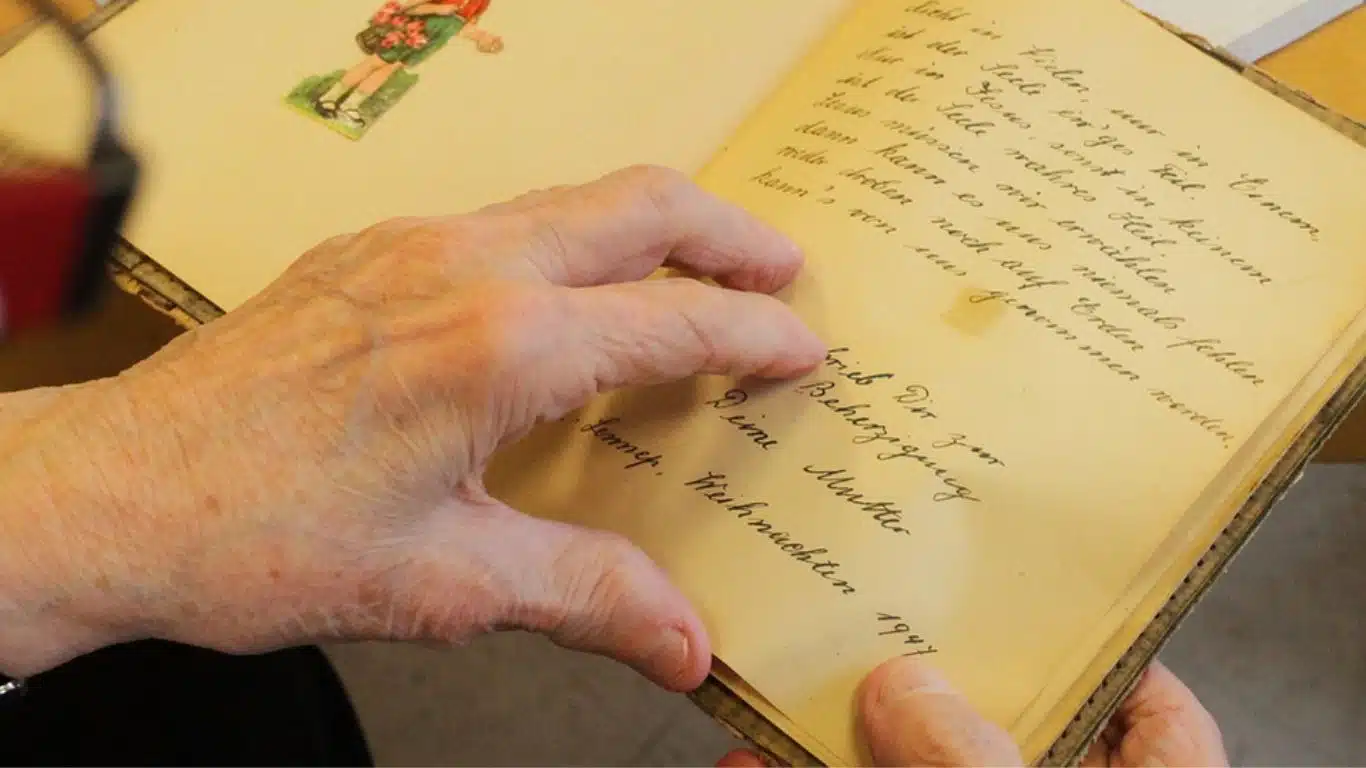 Nicht in Vielen, nur in Einem,
ist der Seele ein'ges Teil.
Nur in Jesus, sonst in keinem
ist der Seele wahres Heil
Jesus müssen wir erwählen
dann kann es uns niemals fehlen
weder droben noch auf Erden
kann's von uns genommen werden.
Dir zur
Beherzigung
Deine Mutter
Lennep, Weihnachten 1947